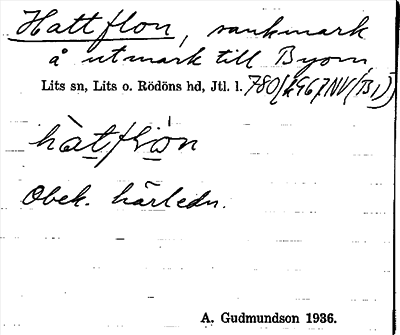 Hattflon, sankmark
å utmark till Byom,
Lits sn, Lits o. Rödöns hd, Jtl. l.
hàtflòn
Obek. härledn.
A. Gudmundson 1936.